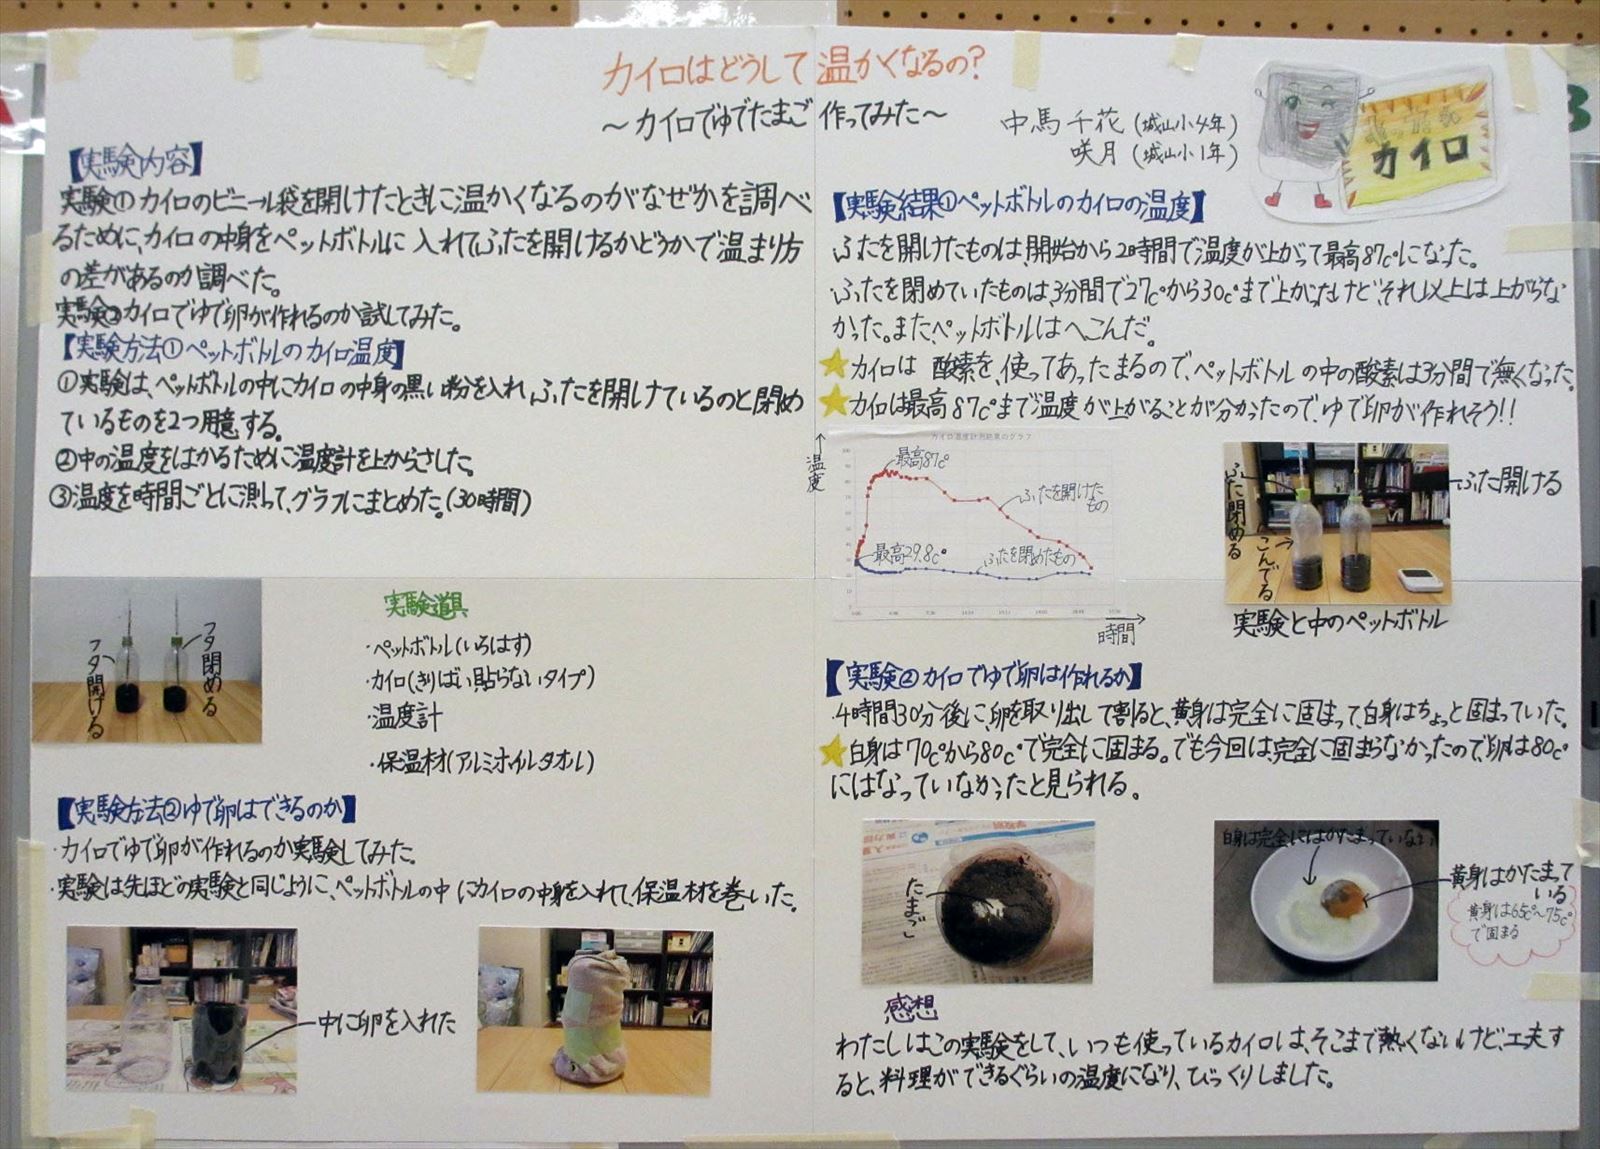 カイロはどうして温かくなるの?
～カイロでゆでたまご作ってみた～
中馬千花(城山小4年)
咲月(城山小1年)
カイロ
【実験内容】
実験①カイロのビニール袋を開けたときに温かくなるのがなぜかを調べ
るために、カイロの中身をペットボトルに入れてふたを開けるかどうかで温まり方
の差があるのか調べた。
実験②カイロでゆで卵が作れるのか試してみた。
【実験方法①ペットボトルのカイロ温度】
①実験は、ペットボトルの中にカイロの中身の黒い粉を入れ、ふたを開けているのと閉め
ているものを2つ用意する。
②中の温度をはかるために温度計を上からさした。
③温度を時間ごとに測って、グラフにまとめた。(30時間)
フタ開ける
フタ閉める
実験道具
・ペットボトル(いろはす)
・カイロ(きりばい貼らないタイプ)
・温度計
・保温材(アルミホイルタオル)
【実験方法②ゆで卵はできるのか】
・カイロでゆで卵が作れるのか実験してみた。
・実験は先ほどの実験と同じように、ペットボトルの中にカイロの中身を入れて、保温材を巻いた。
中に卵を入れた
【実験結果①ペットボトルのカイロの温度】
ふたを開けたものは、開始から2時間で温度が上がって最高87c°になった。
・ふたを閉めていたものは、3分間で27c°から30c°まで上がったけど、それ以上は上がらな
かった。また、ペットボトルはへこんだ。
★カイロは 酸素を、使ってあったまるので、ペットボトルの中の酸素は3分間で無くなった。
★カイロは最高87c°まで温度が上がることが分かったので、ゆで卵が作れそう!!
カイロ温度計測結果のグラフ
温度
最高87c°
ふたを開けた
もの
最高29.8c°
ふたを閉めたもの
時間
ふた閉める
へこんでる
ふた開ける
実験と中のペットボトル
【実験②カイロでゆで卵は作れるか】
・4時間30分後に、卵を取り出して割ると、黄身は完全に固まって、白身はちょっと固まっていた。
★白身は70c°から80c°で完全に固まる。でも今回は、完全に固まらなかったので、卵は80c°
にはなっていなかったと見られる。
たまご
白身は完全にはかたまっていない
黄身はかたまって
いる
黄身は65c°～75c°
で固まる
感想
わたしはこの実験をして、いつも使っているカイロは、そこまで熱くないけど、工夫す
ると、料理ができるぐらいの温度になり、びっくりしました。